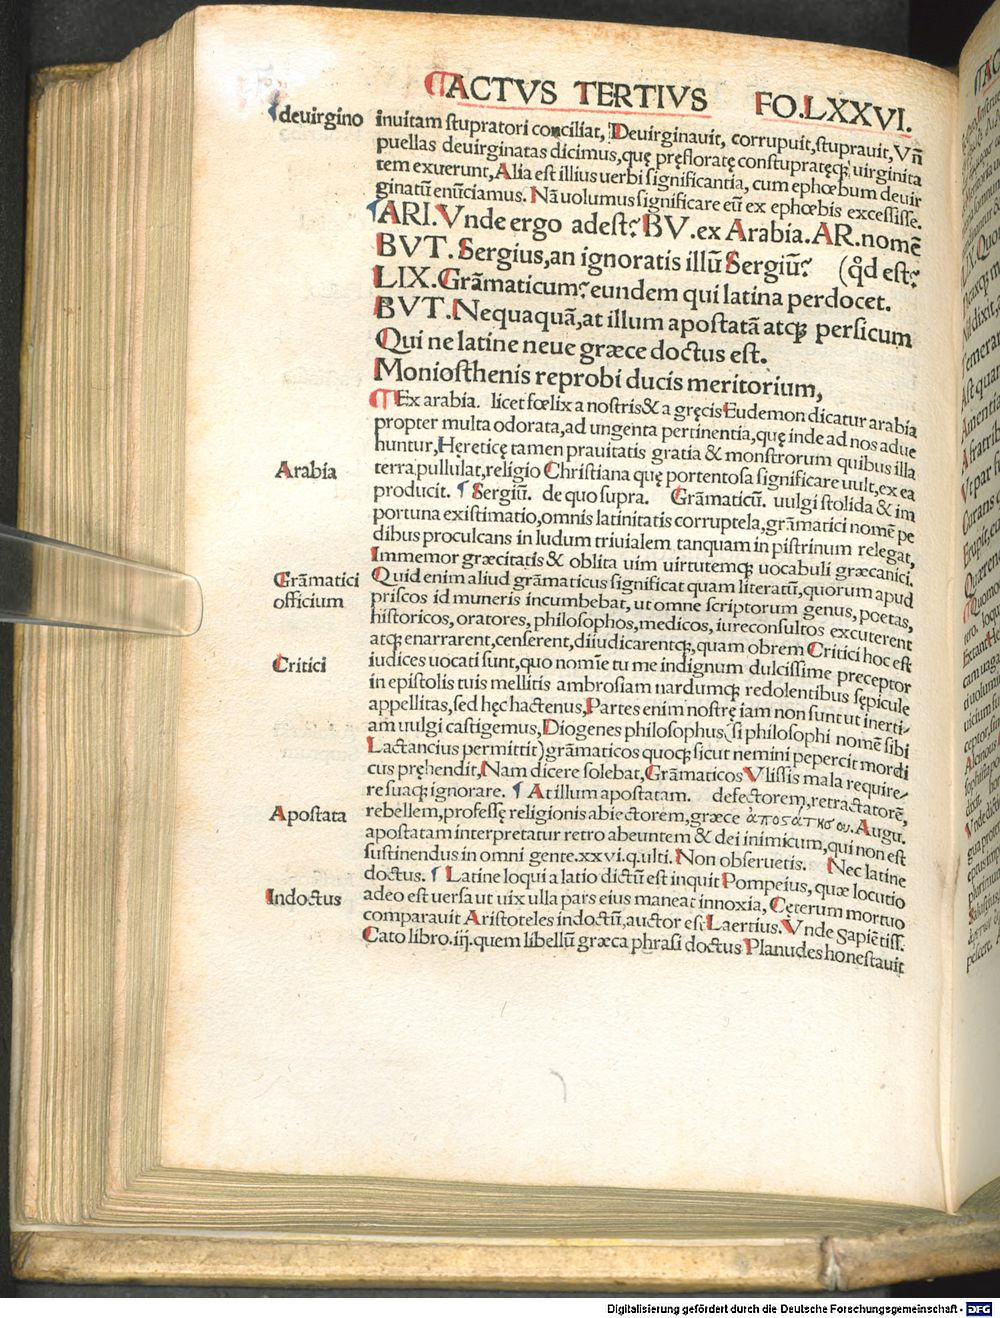 ACTVS TERTIVS FO.LXXVI.
deuirgino
inuitam stupratori conciliat, Deuirginauit, corrupuit, stuprauit, Vñ
puellas deuirginatas dicimus, quę pręfloratę constupratęq; uirginita
tem exuerunt, Alia est illius uerbi significantia, cum ephœbum deuir
ginatū enūciamus. Nā uolumus significare eū ex ephœbis excessisse.
¶ARI. Vnde ergo adest? BV. ex Arabia. AR. nomē
BVT. Sergius, an ignoratis illū Sergiū? (qd̊ est?
LIX. Grāmaticum? eundem qui latina perdocet.
BVT. Nequaquā, at illum apostatā atq; persicum
Qui ne latine neue græce doctus est.
Moniosthenis reprobi ducis meritorium,
Ex arabia. licet fœlix a nostris & a gręcis Eudemon dicatur arabia
propter multa odorata, ad ungenta pertinentia, quę inde ad nos adue
huntur, Hęreticę tamen prauitatis gratia & monstrorum quibus illa
Arabia
terra pullulat, religio Christiana quę portentosa significare uult, ex ea
producit. ¶ Sergiū. de quo supra. Grāmaticū. uulgi stolida & im
portuna existimatio, omnis latinitatis corruptela, grāmatici nomē pe
dibus proculcans in ludum triuialem tanquam in pistrinum relegat,
Immemor græcitatis & oblita uim uirtutemq; uocabuli græcanici.
Grāmatici
officium
Quid enim aliud grāmaticus significat quam literatū, quorum apud
priscos id muneris incumbebat, ut omne scriptorum genus, poetas,
historicos, oratores, philosophos, medicos, iureconsultos excuterent
atq; enarrarent, censerent, diiudicarentq;, quam obrem Critici hoc est
Critici
iudices uocati sunt, quo nomīe tu me indignum dulcissime preceptor
in epistolis tuis mellitis ambrosiam nardumq; redolentibus sępicule
appellitas, sed hęc hactenus, Partes enim nostrę iam non sunt ut inerti⸗
am uulgi castigemus, Diogenes philosophus (si philosophi nomē sibi
Lactancius permittit) grāmaticos quoq; sicut nemini pepercit mordi
cus pręhendit, Nam dicere solebat, Grāmaticos Vlissis mala require⸗
re suaq; ignorare. ¶ At illum apostatam. defectorem, retractatorē,
Apostata
rebellem, professę religionis abiectorem, græce ἀποσάτησου. Augu.
apostatam interpretatur retro abeuntem & dei inimicum, qui non est
sustinendus in omni gente. xxvi. q. ulti. Non obseruetis. Nec latine
doctus. ¶ Latine loqui a latio dictū est inquit Pompeius, quæ locutio
Indoctus
adeo est uersa ut uix ulla pars eius maneat innoxia, Cęterum mortuo
comparauit Aristoteles indoctū, auctor est Laertius. Vnde sapiētiss.
Cato libro. iij. quem libellū græca phrasi doctus Planudes honestauit
Digitalisierung gefördert durch die Deutsche Forschungsgemeinschaft - DFG